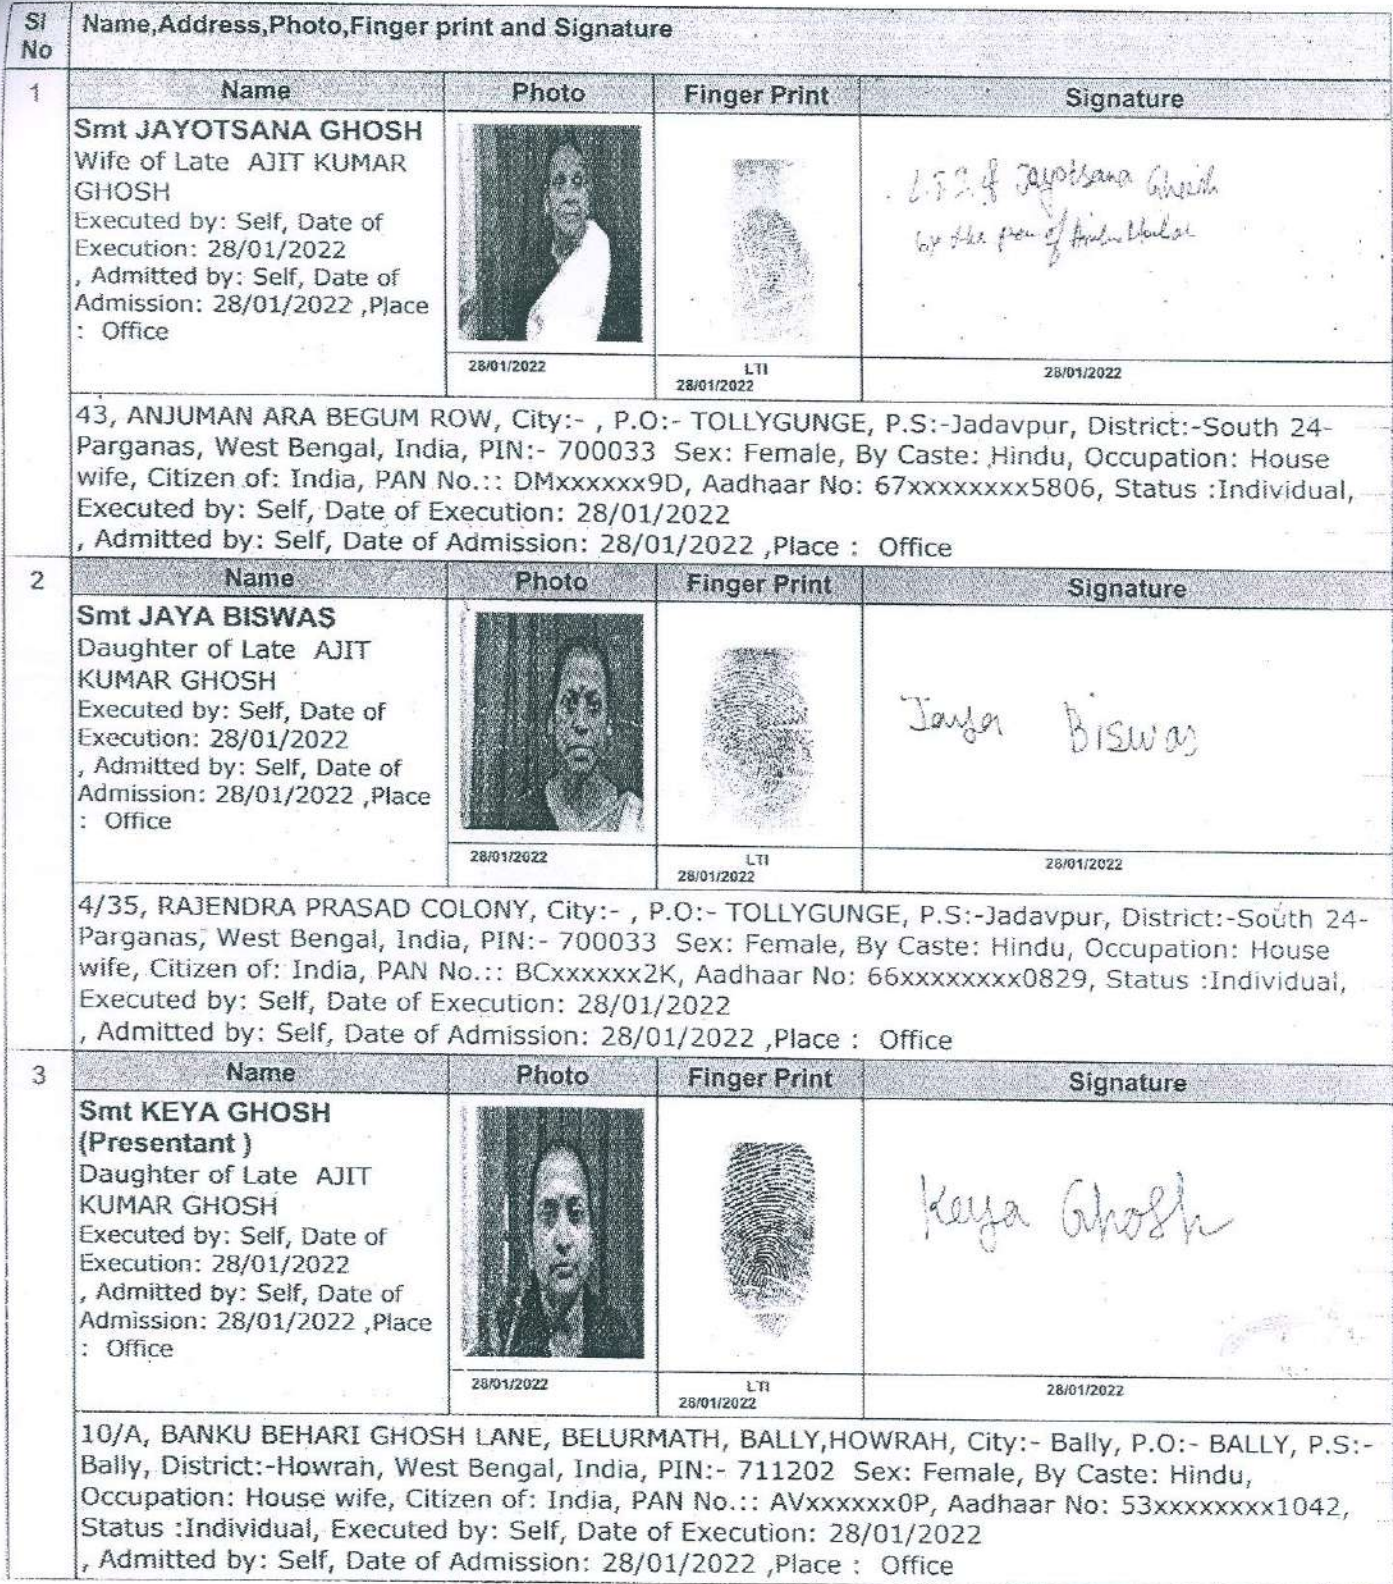 Sl No
Name,Address,Photo,Finger print and Signature
1
Name
Photo
Finger Print
Signature
Smt JAYOTSANA GHOSH
Wife of Late AJIT KUMAR
GHOSH
Executed by: Self, Date of
Execution: 28/01/2022
, Admitted by: Self, Date of
Admission: 28/01/2022 ,Place
: Office
of Jayotsana Ghosh
by the pen of
28/01/2022
LTI
28/01/2022
28/01/2022
43, ANJUMAN ARA BEGUM ROW, City:- , P.O:- TOLLYGUNGE, P.S:-Jadavpur, District:-South 24-
Parganas, West Bengal, India, PIN:- 700033 Sex: Female, By Caste: Hindu, Occupation: House
wife, Citizen of: India, PAN No.:: DMxxxxxx9D, Aadhaar No: 67xxxxxxxx5806, Status :Individual,
Executed by: Self, Date of Execution: 28/01/2022
, Admitted by: Self, Date of Admission: 28/01/2022 ,Place : Office
2
Name
Photo
Finger Print
Signature
Smt JAYA BISWAS
Daughter of Late AJIT
KUMAR GHOSH
Executed by: Self, Date of
Execution: 28/01/2022
, Admitted by: Self, Date of
Admission: 28/01/2022 ,Place
: Office
Jaya Biswas
28/01/2022
LTI
28/01/2022
28/01/2022
4/35, RAJENDRA PRASAD COLONY, City:- , P.O:- TOLLYGUNGE, P.S:-Jadavpur, District:-South 24-
Parganas, West Bengal, India, PIN:- 700033 Sex: Female, By Caste: Hindu, Occupation: House
wife, Citizen of: India, PAN No.:: BCxxxxxx2K, Aadhaar No: 66xxxxxxxx0829, Status :Individual,
Executed by: Self, Date of Execution: 28/01/2022
, Admitted by: Self, Date of Admission: 28/01/2022 ,Place : Office
3
Name
Photo
Finger Print
Signature
Smt KEYA GHOSH
(Presentant )
Daughter of Late AJIT
KUMAR GHOSH
Executed by: Self, Date of
Execution: 28/01/2022
, Admitted by: Self, Date of
Admission: 28/01/2022 ,Place
: Office
Keya Ghosh
28/01/2022
LTI
28/01/2022
28/01/2022
10/A, BANKU BEHARI GHOSH LANE, BELURMATH, BALLY,HOWRAH, City:- Bally, P.O:- BALLY, P.S:-
Bally, District:-Howrah, West Bengal, India, PIN:- 711202 Sex: Female, By Caste: Hindu,
Occupation: House wife, Citizen of: India, PAN No.:: AVxxxxxx0P, Aadhaar No: 53xxxxxxxx1042,
Status :Individual, Executed by: Self, Date of Execution: 28/01/2022
, Admitted by: Self, Date of Admission: 28/01/2022 ,Place : Office